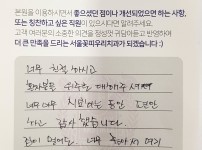 본원을 이용하시면서 좋으셨던 점이나 개선되었으면 하는 사항,
또는 칭찬하고 싶은 직원이 있다면 알려주세요.
고객 여러분의 소중한 의견을 정성껏 귀담아듣고 반영하여
더 큰 만족을 드리는 서울꽃피우리치과가 되겠습니다 :)
너무 친절 하시고
환자분들 위주로 대해주셔서
너무 너무 치료하는 동안 도움만
하고 감사 했습니다.
너무